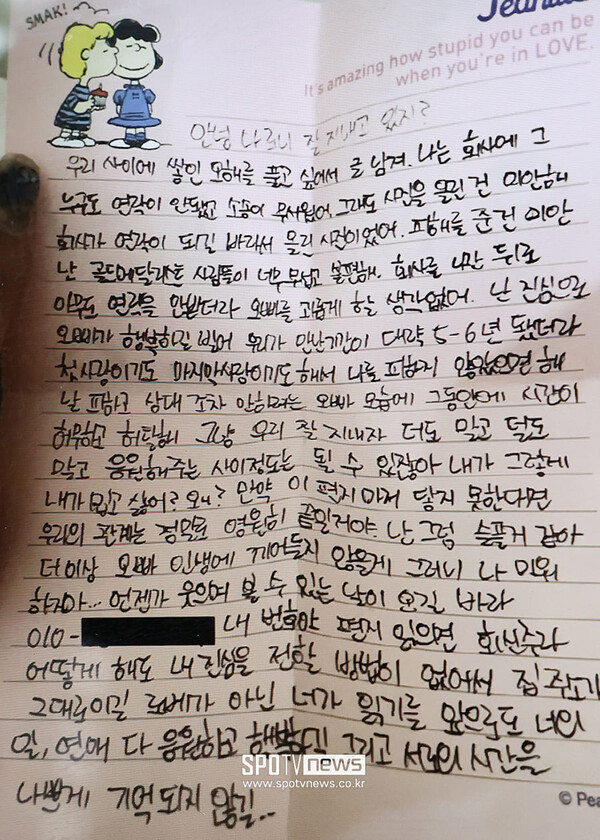 SMAK!
It's amazing how stupid you can be
when you're in LOVE.
안녕 나 잘 지내고 있지?
우리 사이에 쌓인 오해를 풀고 싶어서 글 남겨. 나는 회사에 그
누구도 연락이 안됐고 소송이 무서웠어. 그래도 사진을 올린 건 미안해
회사가 연락이 되길 바라서 올린 사진이었어. 피해를 준건 미안
난 골드메달리스트 사람들이 너무 무섭고 불편해. 회사를 나간 뒤로
아무도 연락을 안받더라 오빠를 괴롭게 할 생각없어. 난 진심으로
오빠가 행복하길 빌어 우리가 만난기간이 대략 5-6년 됐더라
첫사랑이기도 마지막사랑이기도해서 나를 피하지 않았으면 해
날 피하고 상대 조차 안하려는 오빠 모습에 그동안에 시간이
허무하고 허탈해 그냥 우리 잘 지내자 더도 말고 덜도
말고 응원해주는 사이정도는 될 수 있잖아 내가 그렇게
내가 밉고 싫어? 왜? 만약 이 편지마저 닿지 못한다면
우리의 관계는 정말로 영원히 끝일거야. 난 그럼 슬플거 같아
더이상 오빠 인생에 끼어들지 않을게 그러니 나 미워
하지마... 언젠가 웃으며 볼 수 있는 날이 오길 바라
010- 내 번호야 편지 읽으면 회신주라
어떻게 해도 내 진심을 전할 방법이 없어서 집 주소가
그대로이길 로베가 아닌 너가 읽기를 앞으로도 너의
일, 연애 다 응원하고 행복하길 그리고 서로의 시간을
나쁘게 기억되지 않길..
SPOTVnews
www.spotvnews.co.kr
© Pea